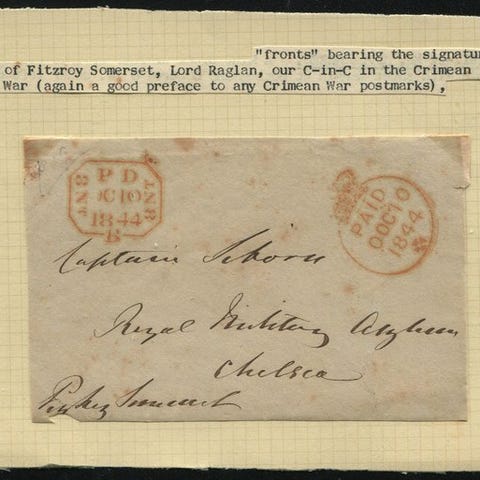 "fronts" bearing the signatur
of Fitzroy Somerset, Lord Raglan, our C-in-C in the Crimean
War (again a good preface to any Crimean War postmarks),
PD
OC 10
1844
B
8NT
8NT
PAID
OC 10
1844
Captain Siborn
Royal Military Asylum
Chelsea
Fitzroy Somerset